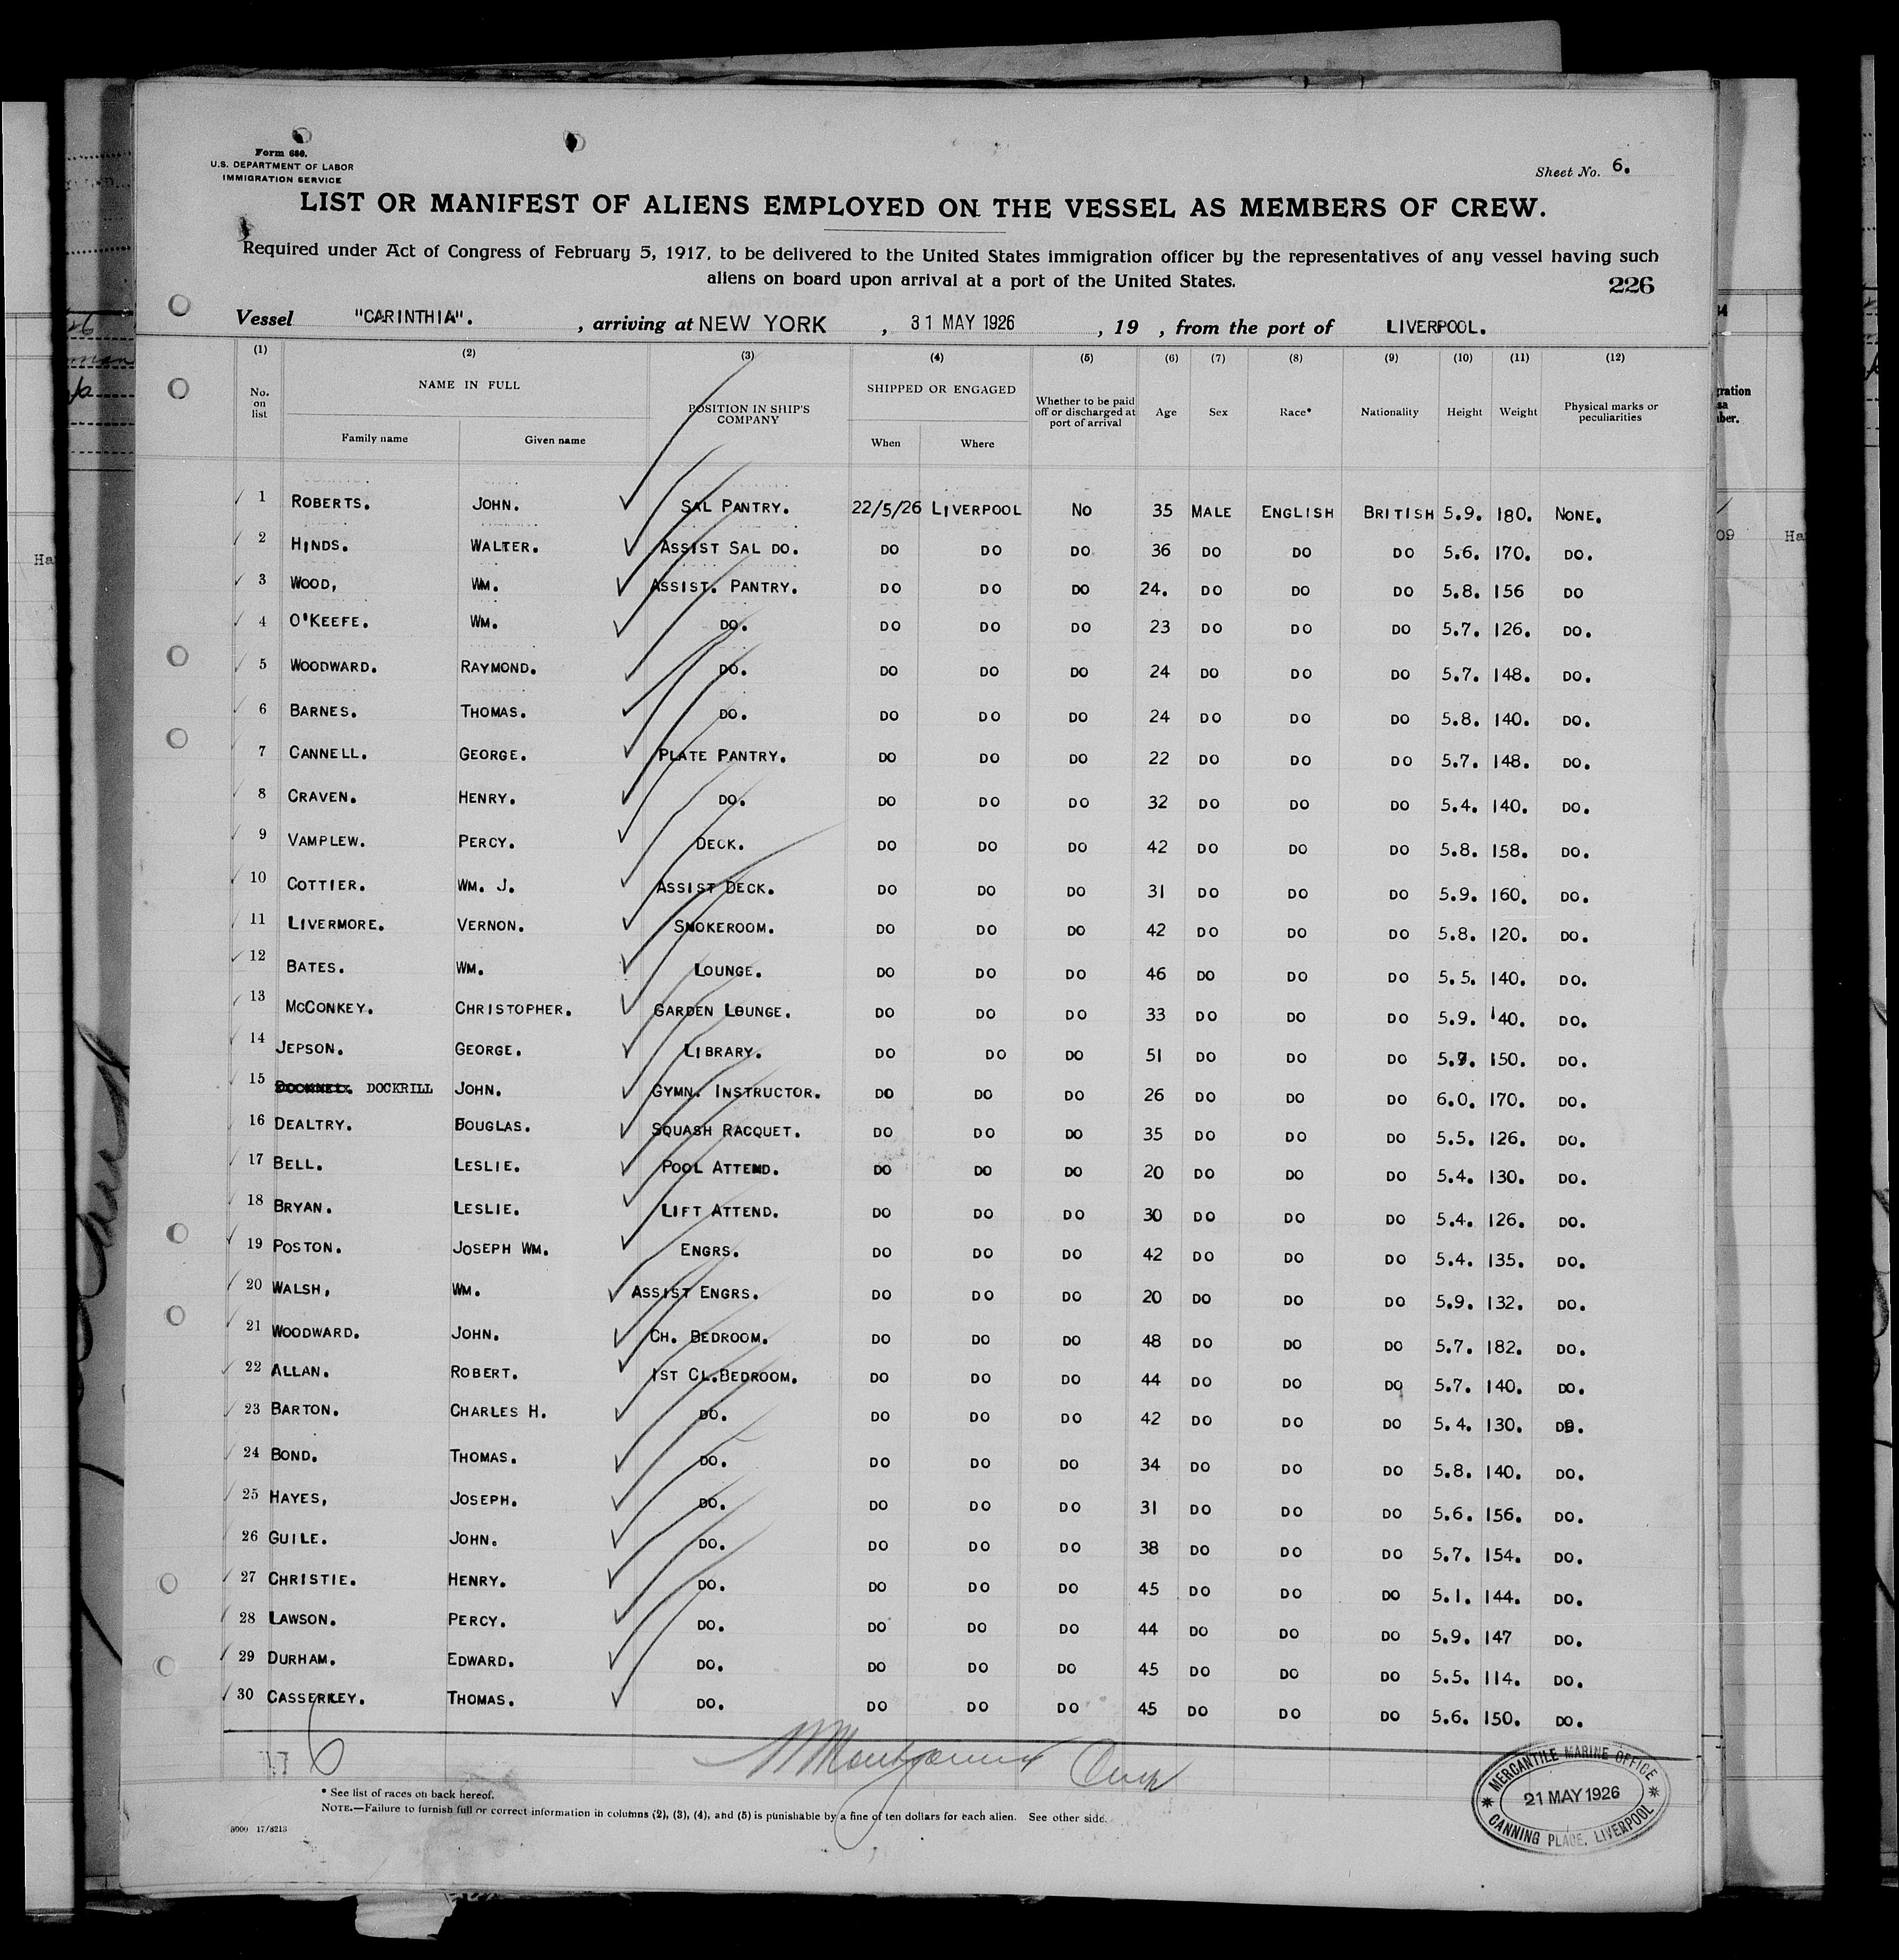 Form 680.
U.S. DEPARTMENT OF LABOR
IMMIGRATION SERVICE
Sheet No. 6.
LIST OR MANIFEST OF ALIENS EMPLOYED ON THE VESSEL AS MEMBERS OF CREW.
Required under Act of Congress of February 5, 1917, to be delivered to the United States immigration officer by the representatives of any vessel having such
aliens on board upon arrival at a port of the United States.
226
Vessel "CARINTHIA". , arriving at NEW YORK , 31 MAY 1926 , 19 , from the port of LIVERPOOL.
(1) (2) (3) (4) (5) (6) (7) (8) (9) (10) (11) (12)
No. on list NAME IN FULL Family name Given name POSITION IN SHIP'S COMPANY SHIPPED OR ENGAGED When Where Whether to be paid off or discharged at port of arrival Age Sex Race* Nationality Height Weight Physical marks or peculiarities
1 ROBERTS. JOHN. SAL PANTRY. 22/5/26 LIVERPOOL NO 35 MALE ENGLISH BRITISH 5.9. 180. NONE.
2 HINDS. WALTER. ASSIST SAL DO. DO DO DO. 36 DO DO DO 5.6. 170. DO.
3 WOOD, WM. ASSIST. PANTRY. DO DO DO 24. DO DO DO 5.8. 156 DO
4 O'KEEFE. WM. DO. DO DO DO 23 DO DO DO 5.7. 126. DO.
5 WOODWARD. RAYMOND. DO. DO DO DO 24 DO DO DO 5.7. 148. DO.
6 BARNES. THOMAS. DO. DO DO DO 24 DO DO DO 5.8. 140. DO.
7 CANNELL. GEORGE. PLATE PANTRY. DO DO DO 22 DO DO DO 5.7. 148. DO.
8 CRAVEN. HENRY. DO. DO DO DO 32 DO DO DO 5.4. 140. DO.
9 VAMPLEW. PERCY. DECK. DO DO DO 42 DO DO DO 5.8. 158. DO.
10 COTTIER. WM. J. ASSIST DECK. DO DO DO 31 DO DO DO 5.9. 160. DO.
11 LIVERMORE. VERNON. SMOKEROOM. DO DO DO 42 DO DO DO 5.8. 120. DO.
12 BATES. WM. LOUNGE. DO DO DO 46 DO DO DO 5.5. 140. DO.
13 MCCONKEY. CHRISTOPHER. GARDEN LOUNGE. DO DO DO 33 DO DO DO 5.9. 140. DO.
14 JEPSON. GEORGE. LIBRARY. DO DO DO 51 DO DO DO 150. DO.
15 DOCKRILL JOHN. GYMN. INSTRUCTOR. DO DO DO 26 DO DO DO 6.0. 170. DO.
16 DEALTRY. DOUGLAS. SQUASH RACQUET. DO DO DO 35 DO DO DO 5.5. 126. DO.
17 BELL. LESLIE. POOL ATTEND. DO DO DO 20 DO DO DO 5.4. 130. DO.
18 BRYAN. LESLIE. LIFT ATTEND. DO DO DO 30 DO DO DO 5.4. 126. DO.
19 POSTON. JOSEPH WM. ENGRS. DO DO DO 42 DO DO DO 5.4. 135. DO.
20 WALSH, WM. ASSIST ENGRS. DO DO DO 20 DO DO DO 5.9. 132. DO.
21 WOODWARD. JOHN. CH. BEDROOM. DO DO DO 48 DO DO DO 5.7. 182. DO.
22 ALLAN. ROBERT. 1ST CL.BEDROOM. DO DO DO 44 DO DO DO 5.7. 140. DO.
23 BARTON. CHARLES H. DO. DO DO DO 42 DO DO DO 5.4. 130. DO.
24 BOND. THOMAS. DO. DO DO DO 34 DO DO DO 5.8. 140. DO.
25 HAYES, JOSEPH. DO. DO DO DO 31 DO DO DO 5.6. 156. DO.
26 GUILE. JOHN. DO. DO DO DO 38 DO DO DO 5.7. 154. DO.
27 CHRISTIE. HENRY. DO. DO DO DO 45 DO DO DO 5.1. 144. DO.
28 LAWSON. PERCY. DO. DO DO DO 44 DO DO DO 5.9. 147 DO.
29 DURHAM. EDWARD. DO. DO DO DO 45 DO DO DO 5.5. 114. DO.
30 CASSERLEY. THOMAS. DO. DO DO DO 45 DO DO DO 5.6. 150. DO.
* See list of races on back hereof.
NOTE.—Failure to furnish full or correct information in columns (2), (3), (4), and (5) is punishable by a fine of ten dollars for each alien. See other side.
MERCANTILE MARINE OFFICE
21 MAY 1926
CANNING PLACE, LIVERPOOL